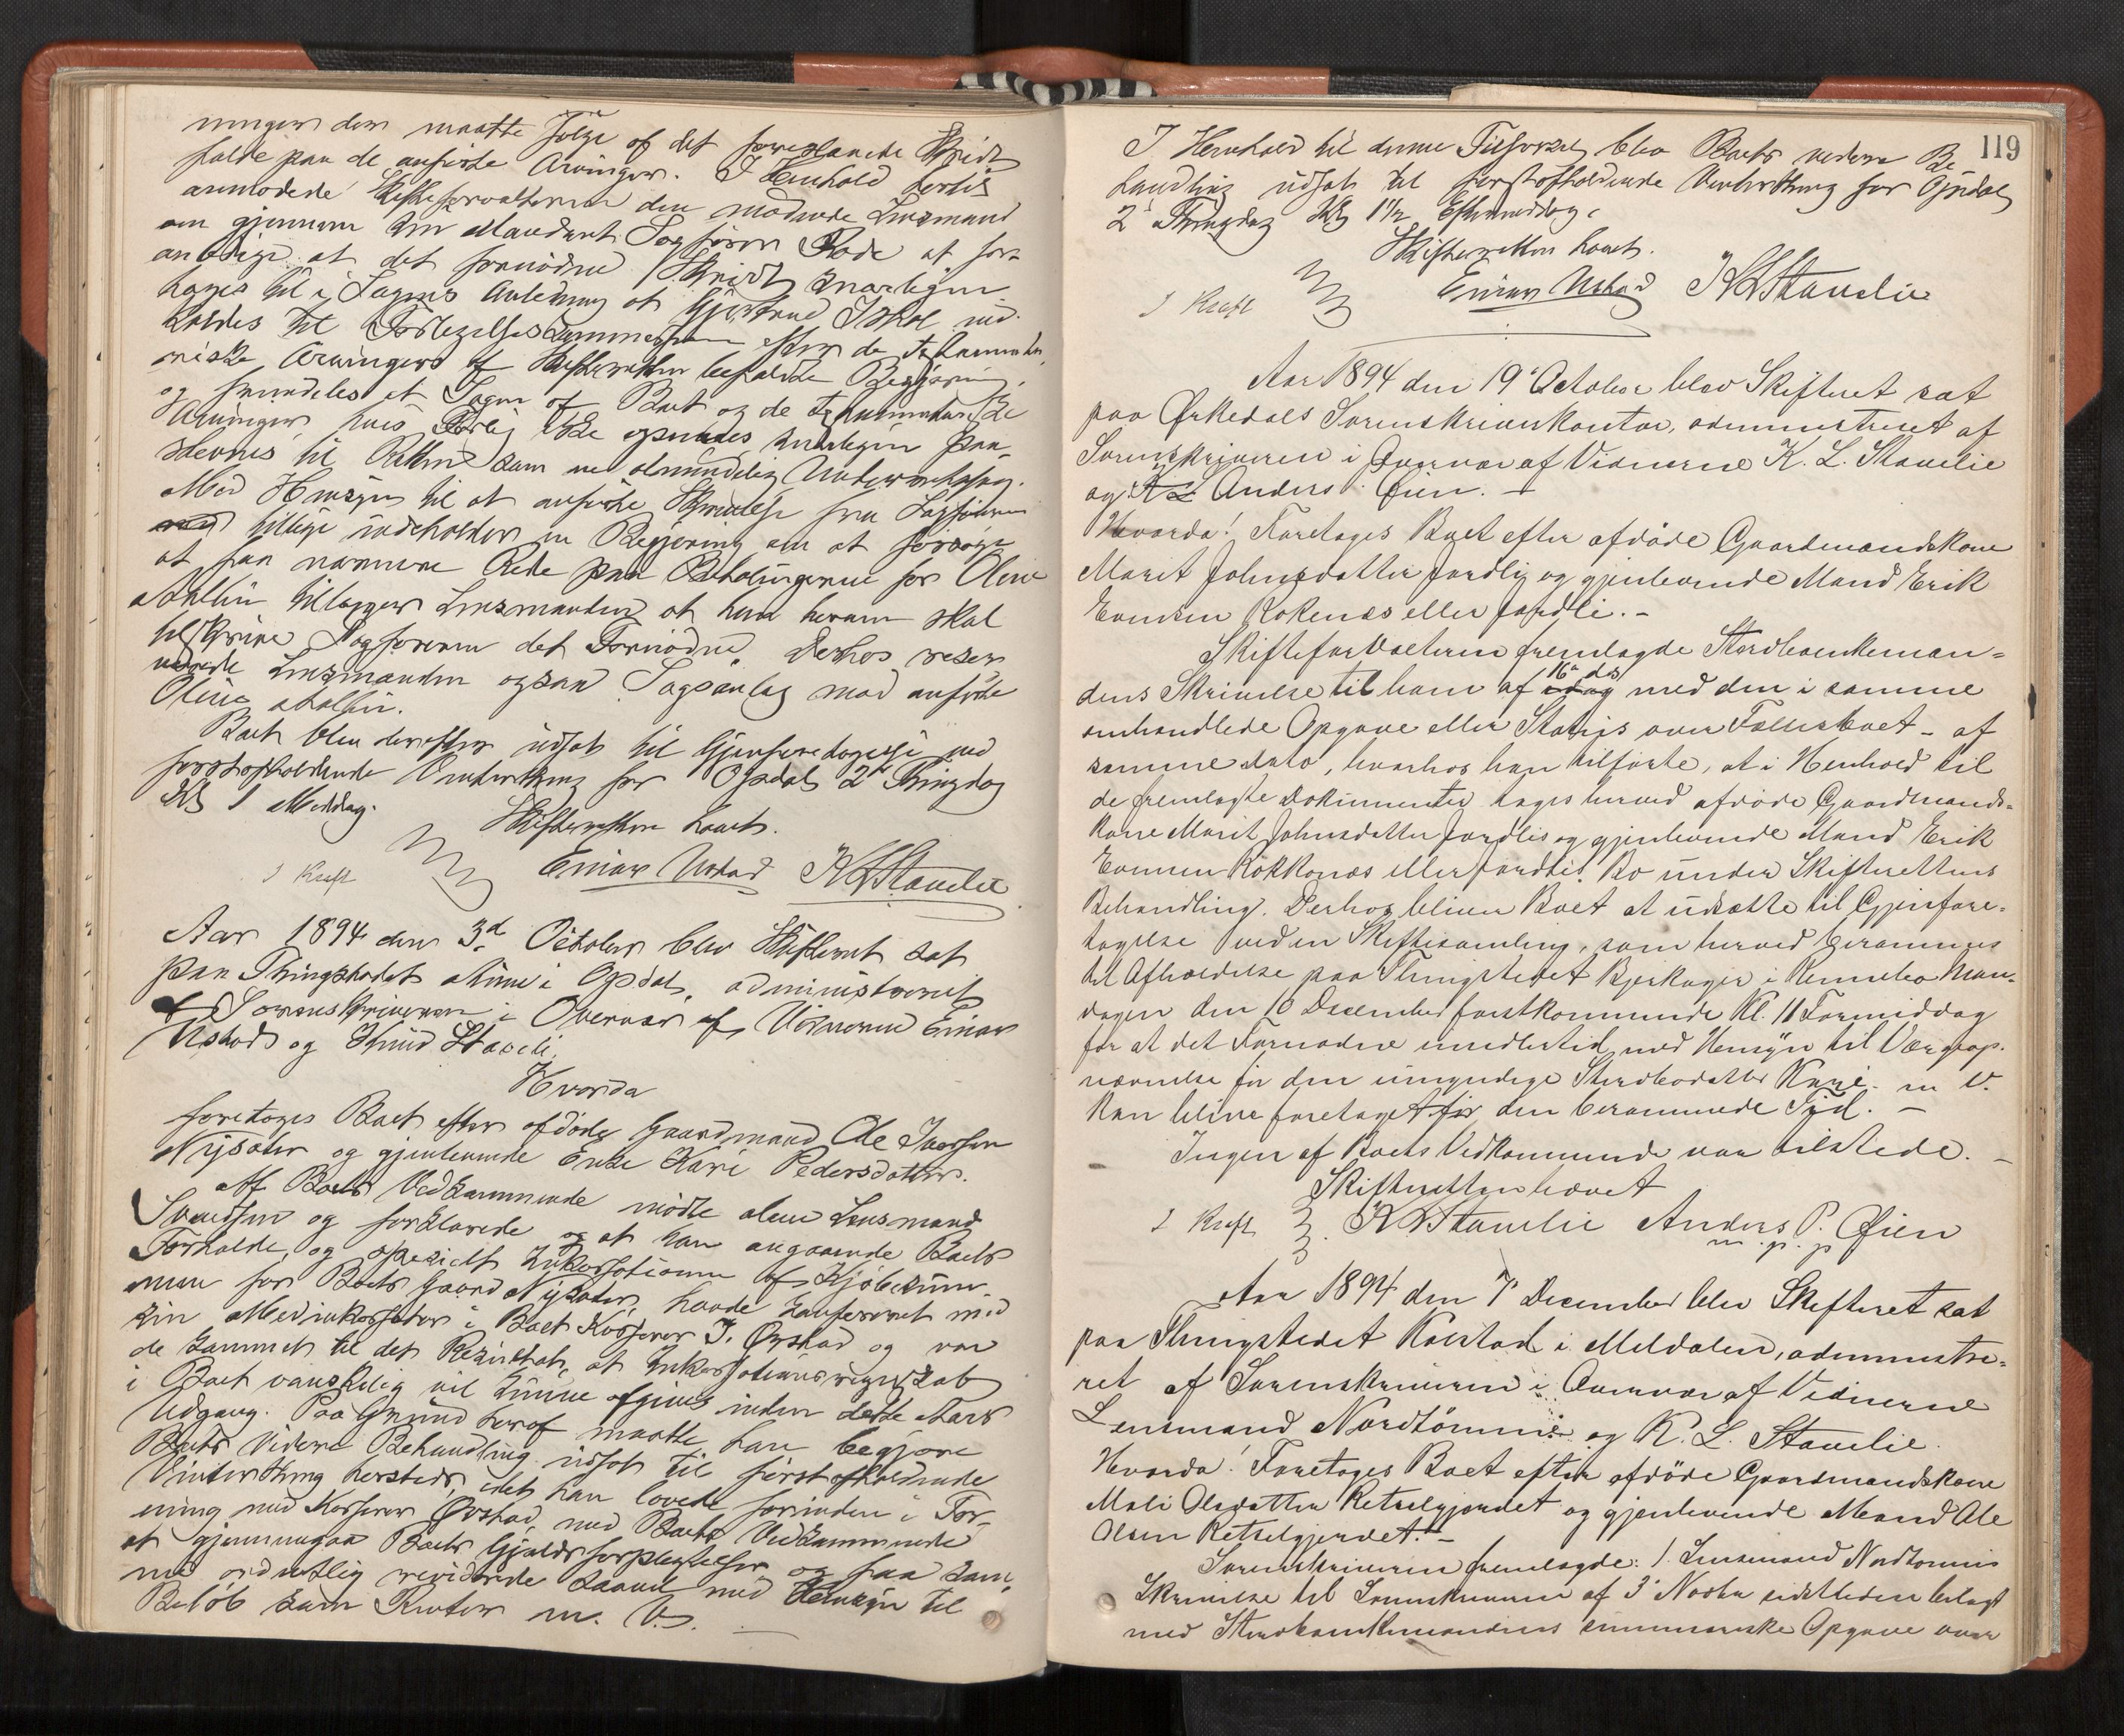 ninger der maatte følge af det foreslaaede Skridt
falde paa de anførte Arvinger. I Henhold hertil
anmodede Skifteforvalteren den mødende Lensmand
om gjennem sin Mandant Sagfører Rode at for-
anledige at det fornødne Skridt snarligen
tages til i Sagens Anledning at Gjertrud skal ind-
kaldes til Forligelseskommissionen efter de
Arvinger af Skifteretten Begjæring,
og fremdeles at Sagen af Boet og de
Arvinger, hvis Forlig ikke opnaaes, snarligen paa-
stevnes til Retten som en almindelig
Med Hensyn til at anførte Skrivelse fra Sagføreren
tillige indeholder en Begjæring om at forsøge
at faa nærmere Rede paa for Oline
tilføyer Lensmanden at han herom skal
tilskrive Sagføreren det Fornødne. Derhos reser-
verede Lensmanden ogsaa Sagsanlæg mod anførte
Oline
Boet blev derefter udsat til Gjenforetagelse ved
førstafholdende Vinterthing for Opdal 2den Thingdag
Kl 1 Middag.
Skifteretten hævet.
I Kraft Einar Ustad K L Stavelie
Aar 1894 den 3de October blev Skifteret sat
paa Thingstedet Aune i Opdal, administreret
af Sorenskriveren i Overvær af Vidnerne Einar
Ustad og Knud Staveli.
Hvorda
foretoges Boet efter afdøde Gaardmand Ole Iversen
Nysæter og gjenlevende Enke Kari Pedersdatter.
Af Boets Vedkommende mødte alene Lensmand
Svendsen og forklarede og at han angaaende Boets
Forholde, og specielt Inkassationen af Kjøbesum-
men for Boets Gaard Nysæter, havde konfereret med
sin Medinkassator i Boet Kasserer J. Ørstad og var
de kommet til det Resultat, at Inkassationsregnskab
i Boet vanskelig vil kunne afgives inden dette Aars
Udgang. Paa Grund heraf maatte han begjære
Boets videre Behandling udsat til førstafholdende
Vinterthing hersteds, idet han lovede forinden i For-
ening med Kasserer Ørstad, med Boets Vedkommende
at gjennemgaa Boets Gjældsforpligtelser og faa sam-
me ordentlig reviderede saavel med Hensyn til
Beløb som Renter m. V. -
119
I Henhold til denne Tilførsel blev Boets videre Be
handling udsat til førstafholdende Vinterthing for Opdal
2d Thingdag Kl 1½ Eftermiddag.
Skifteretten hævet.
I Kraft Einar Ustad K L Stavelie
Aar 1894 den 19' October blev Skifteret sat
paa Ørkedals Sorenskriverkontor, administreret af
Sorenskriveren i Overvær af Vidnerne K. L. Stavelie
og Anders Øien. -
Hvorda! Foretoges Boet efter afdøde Gaardmandskone
Marit Johnsdatter Jordli og gjenlevende Mand Erik
Evensen Rokenes eller Jordli. -
Skifteforvalteren fremlagde Stordboenkeman=
dens Skrivelse til ham af 16 ds med den i samme
omhandlede Opgave eller Status over Fællesboet - af
samme dato, hvorhos han tilførte, at i Henhold til
de fremlagte Dokumenter tages herved afdøde Gaardmands=
kone Marit Johnsdatter Jordlis og gjenlevende Mand Erik
Evensen Rokkones eller Jordlis Bo under Skifterettens
Behandling. Derhos bliver Boet at udsætte til Gjenfore=
tagelse ved en Skiftesamling, som herved berammes
til Afholdelse paa Thingstedet Bjerkager i Rennebo Man-
dagen den 10 December førstkommende Kl. 11 Formiddag
for at det Fornødne imedlertid med Hensyn til Værgeop-
nævnelse for den umyndige Sterbodatter Kari m V.
kan blive foretaget før den berammede Tid. -
Ingen af Boets Vedkommende var tilstede. -
Skifteretten hævet
I Kraft K L Stavelie Anders P. Øien
m. p. p
Aar 1894 den 7' December blev Skifteret sat
paa Thingstedet Kalstad i Meldalen, administre=
ret af Sorenskriveren i Overvær af Vidnerne
Lensmand Nordtømme og K. L. Stavelie.
Hvorda! Foretoges Boet efter afdøde Gaardmandskone
Mali Olsdatter Retselgjerdet og gjenlevende Mand Ole
Olsen Retselgjerdet. -
Sorenskriveren fremlagde: 1. Lensmand Nordtømmes
Skrivelse til Sorenskriveren af 3' Novbr sidstleden belagt
med Sterboenkemandens summariske Opgave over